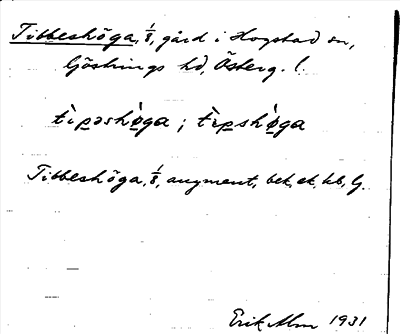 Tibbeshöga, 1/8, gård i Hogstad sn,
Göstrings hd, Österg. l.
tìpəshö̀ga ; tìpshö̀ga
Tibbeshöga, 1/8, augment, bek, ek, kb, G.
Erik Alm 1931